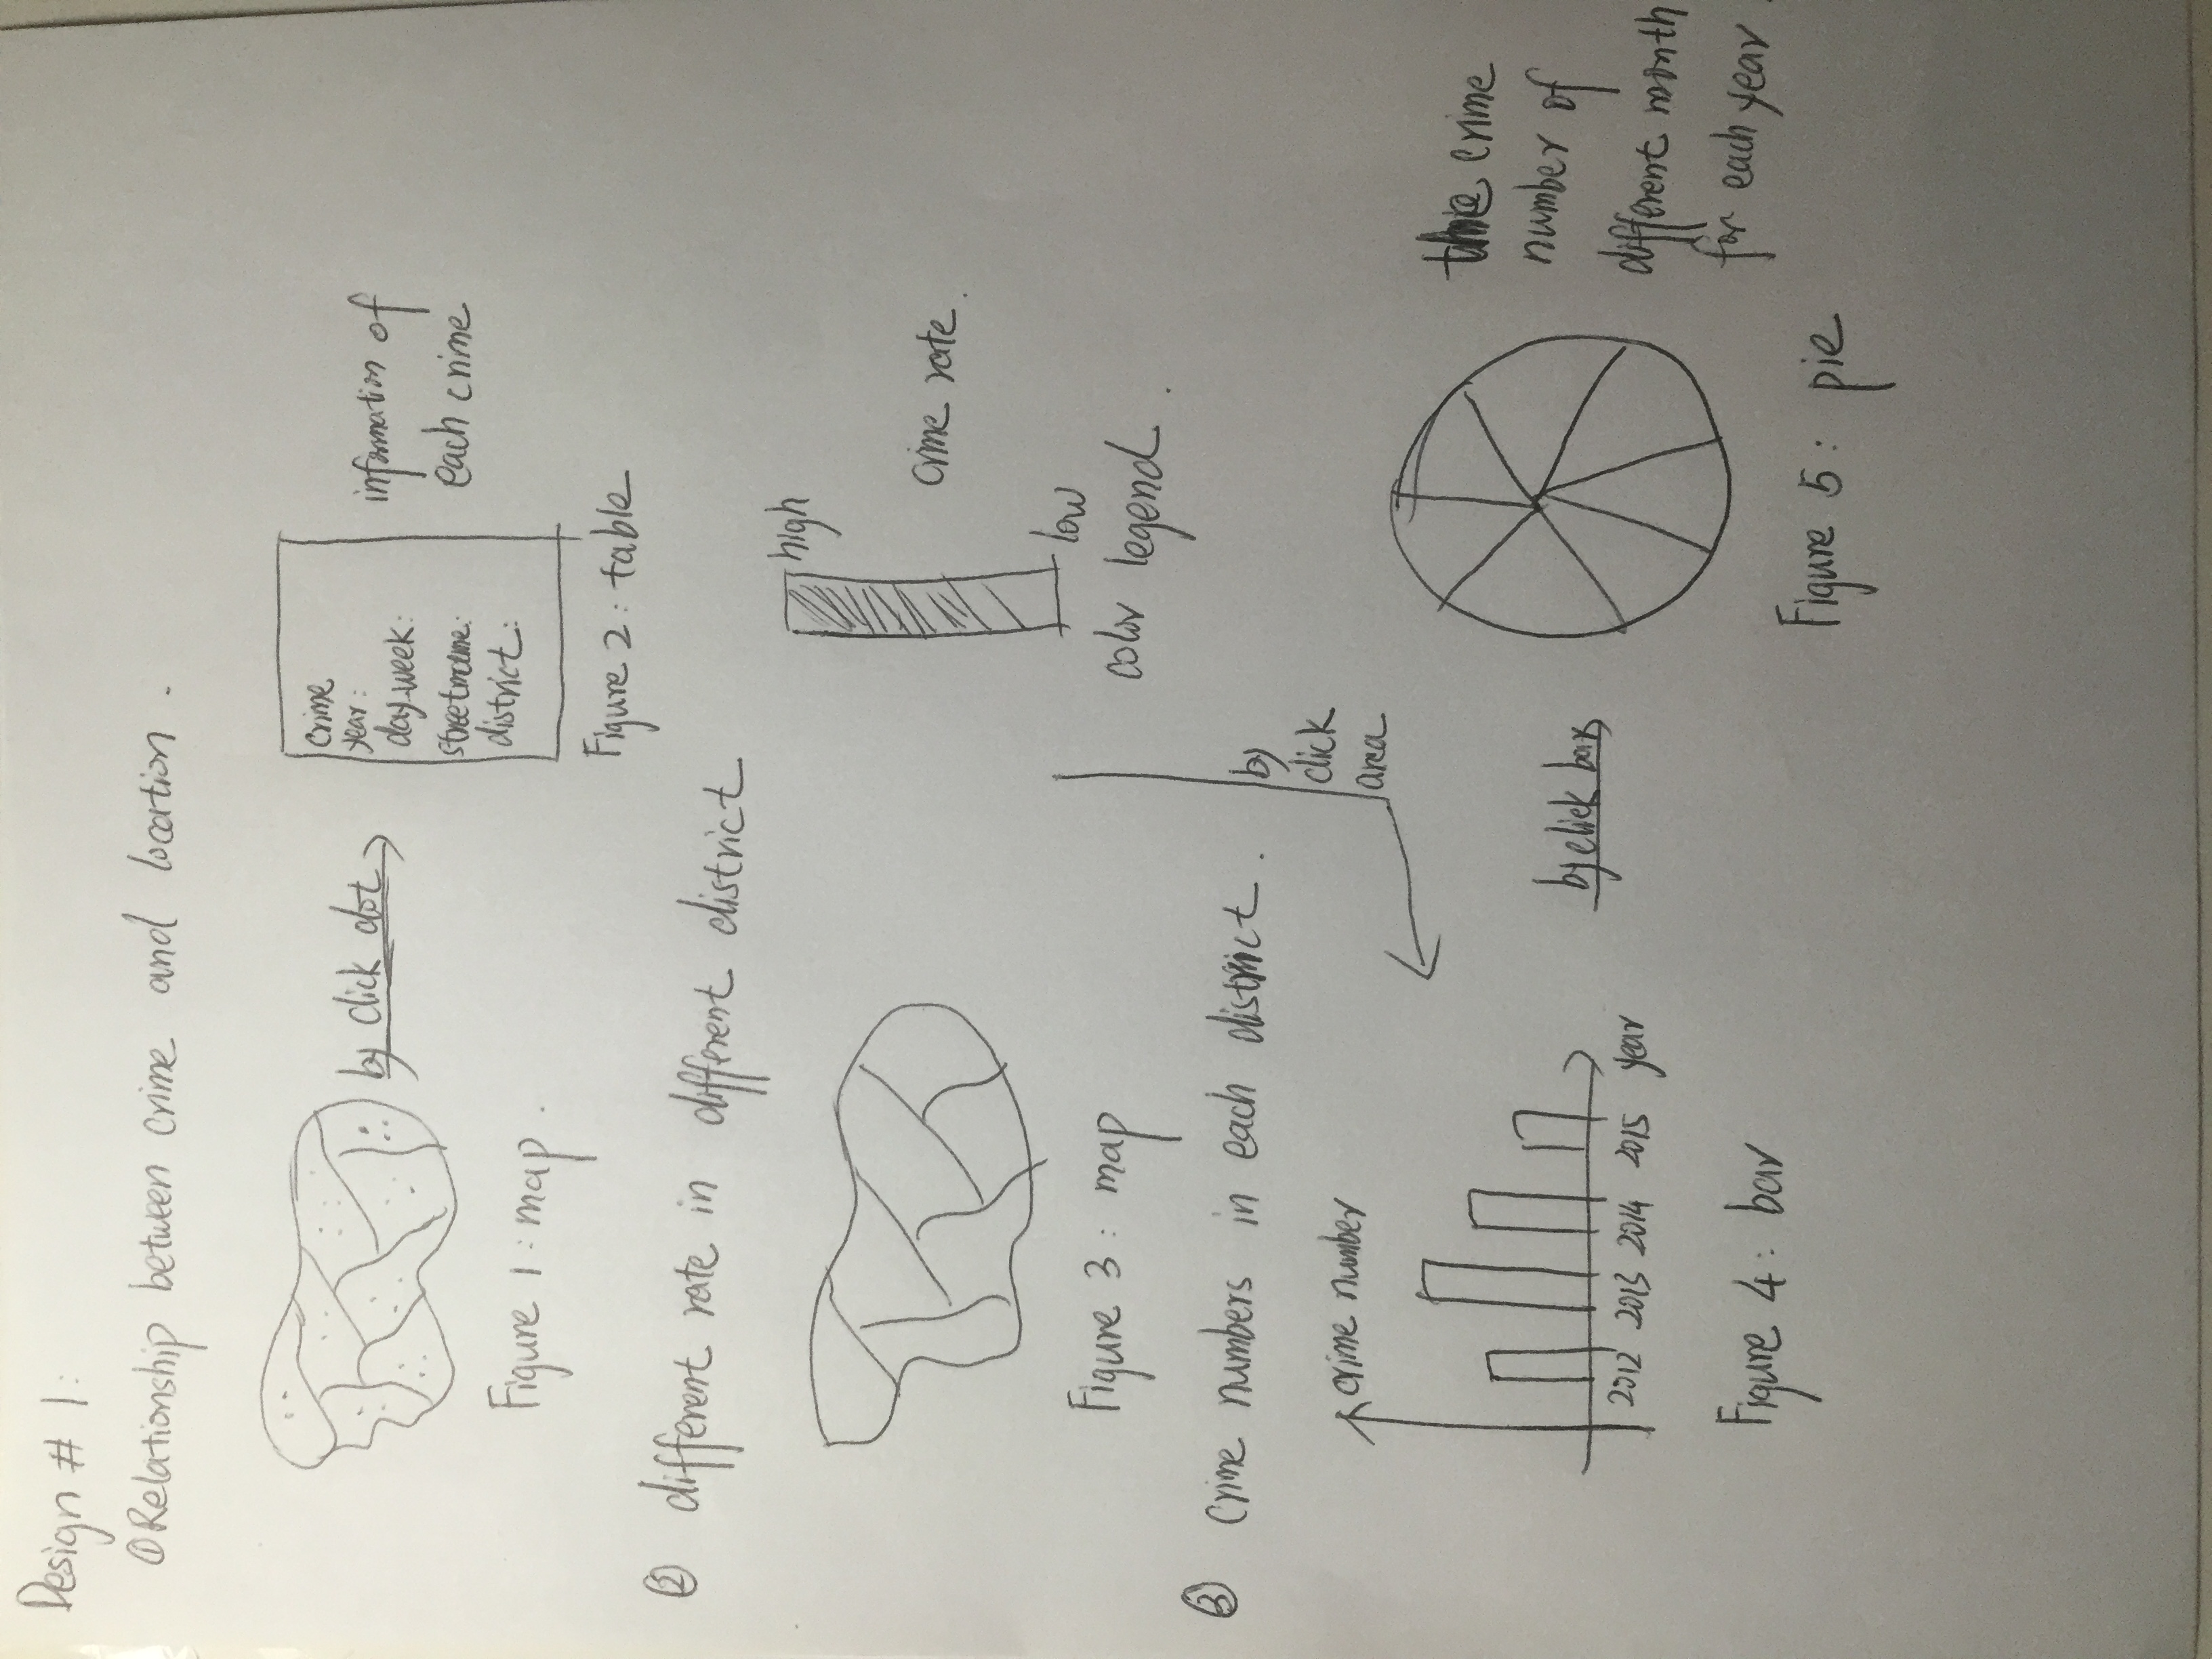 Design # 1:
① Relationship between crime and location.
by click dot
crime
year:
day-week:
streetname:
district:
information of
each crime
Figure 1: map.
Figure 2: table
② different rate in different district
high
crime rate.
low
color legend.
Figure 3: map
③ crime numbers in each district.
by
click
area
crime number
2012 2013 2014 2015 year
by click bar
the crime
number of
different month
for each year.
Figure 4: bar
Figure 5: pie